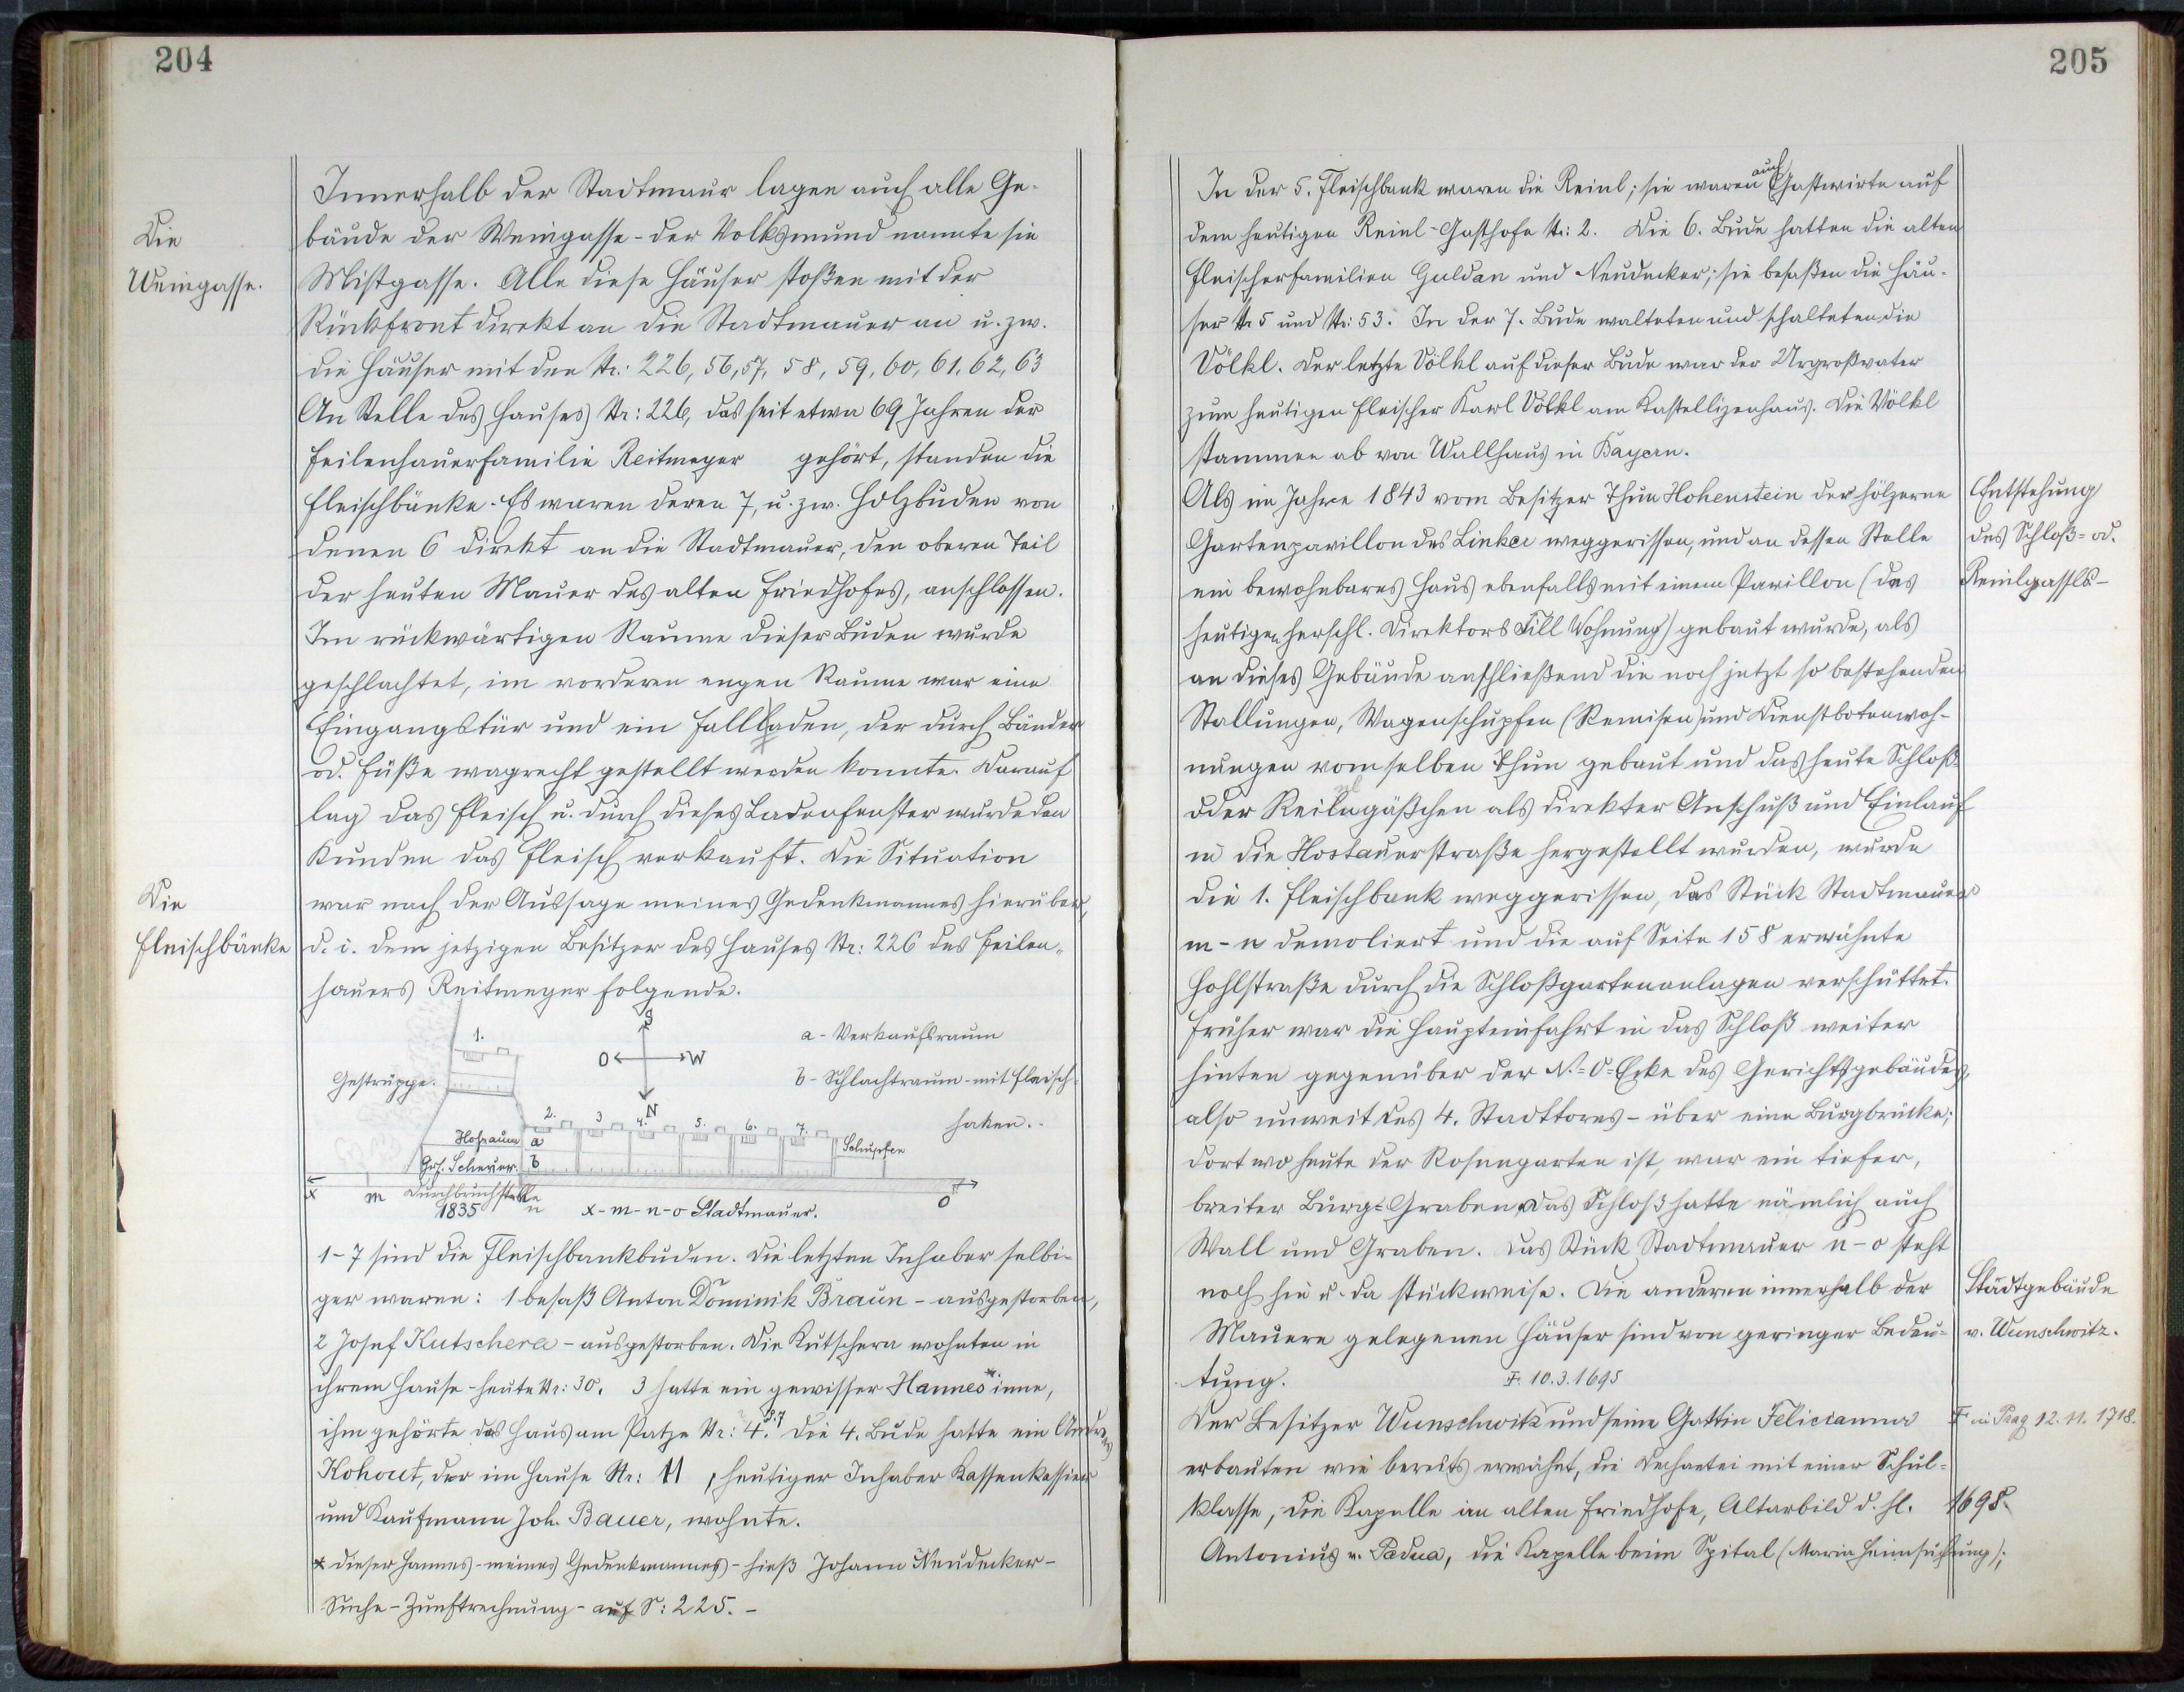 204
Innerhalb der Stadtmaur lagen auch alle Ge-
Die
bäude der Weingasse - der Volksmund nannte sie
Weingasse.
Mistgasse. Alle diese Häuser stoßen mit der
Rückfront direkt an die Stadtmauer an u. zw.
die Häuser mit den Nr.: 226, 56, 57, 58, 59, 60, 61, 62, 63
An Stelle des Hauses Nr: 226, das seit etwa 69 Jahren der
Feilenhauerfamilie Reitmeyer gehört, standen die
Fleischbänke. Es waren deren 7, u. zw. Holzbuden von
denen 6 direkt an die Stadtmauer, den oberen Teil
der heuten Mauer des alten Friedhofes, anschlossen.
Im rückwärtigen Raume dieser Buden wurde
geschlachtet, im vorderen engen Raume war eine
Eingangstür und ein Fallladen, der durch Bänder
od. Füße wagrecht gestellt werden konnte. Darauf
lag das Fleisch u. durch dieses Ladenfenster wurde den
Kunden das Fleisch verkauft. Die Situation
Die
war nach der Aussage meines Gedenkmannes hierüber,
Fleischbänke
d. i. dem jetzigen Besitzer des Hauses Nr: 226 des Feilen-
hauers Reitmeyer folgende.
S
1.
O W
a - Verkaufsraum
Gestrüppe.
b - Schlachtraum - mit Fleisch-
N
haken. -
2. 3 4. 5. 6. 7.
Hofraum a
Schupfen
Grf. Scheuer. b
x m Durchbruchstelle n o
1835
x - m - n - o Stadtmauer.
1-7 sind die Fleischbankbuden. Die letzten Inhaber selbi-
ger waren: 1 besaß Anton Dominik Braun - ausgestorben,
2 Josef Kutschera - ausgestorben. Die Kutschera wohnten in
ihrem Hause - heute Nr: 30. 3 hatte ein gewisser Hannes* inne,
ihm gehörte das Haus am Patze Nr: 4. Die 4. Bude hatte ein Andreas
Kohout, der im Hause Nr: 11, heutiger Inhaber Kassenkassier
und Kaufmann Joh. Bauer, wohnte.
* dieser Hannes - meines Gedenkmannes - hieß Johann Neudecker -
Siehe - Zunftrechnung - auf S: 225. -
205
In der 5. Fleischbank waren die Reinl; sie waren auch Gastwirte auf
dem heutigen Reinl-Gasthofe Nr: 2. Die 6. Bude hatten die alten
Fleischerfamilien Guldan und Neudecker; sie besaßen die Häu-
ser Nr 5 und Nr: 53. In der 7. Bude walteten und schalteten die
Völkl. Der letzte Völkl auf dieser Bude war der Urgroßvater
zum heutigen Fleischer Karl Völkl am Kastellizenhaus. Die Völkl
stammen ab von Wallhaus in Bayern.
Als im Jahre 1843 vom Besitzer Thun Hohenstein der hölzerne
Entstehung
Gartenpavillon des Linker weggerissen, und an dessen Stelle
des Schloß- od.
ein bewohnbares Haus ebenfalls mit einem Pavillon (das
Reinlgassls -
heutigen herschl. Direktors Till Wohnung) gebaut wurde, als
an dieses Gebäude anschließend die noch jetzt so bestehenden
Stallungen, Wagenschupfen (Remisen) und Dienstbotenwoh-
nungen vom selben Thun gebaut und das heute Schloß-
oder Reinlgäßchen als direkter Anschuß und Einlauf
in die Hostauerstraße hergestellt wurden, wurde
die 1. Fleischbank weggerissen, das Stück Stadtmauer
m - n demoliert und die auf Seite 158 erwähnte
Hohlstraße durch die Schloßgartenanlagen verschüttet.
Früher war die Haupteinfahrt in das Schloß weiter
hinten gegenüber der N.-O-Ecke des Gerichtsgebäudes,
also unweit des 4. Stadttores - über eine Burgbrücke;
dort wo heute der Rosengarten ist, war ein tiefer,
breiter Burg-Graben, das Schloß hatte nämlich auch
Wall und Graben. Das Stück Stadtmauer n - o steht
noch hie u. da stückweise. Die anderen innerhalb der
Städtgebäude
Mauern gelegenen Häuser sind von geringer Bedeu-
v. Wunschwitz.
tung.
Ŧ. 10.3.1695
Der Besitzer Wunschwitz und seine Gattin Felicianna
Ŧ in Prag 12. 11. 1718.
erbauten wie bereits erwähnt, die Dechantei mit einer Schul-
klasse, die Kapelle im alten Friedhofe, Altarbild d. hl.
1698.
Antonius v. Padua, die Kapelle beim Spital (Maria Heimsuchung);